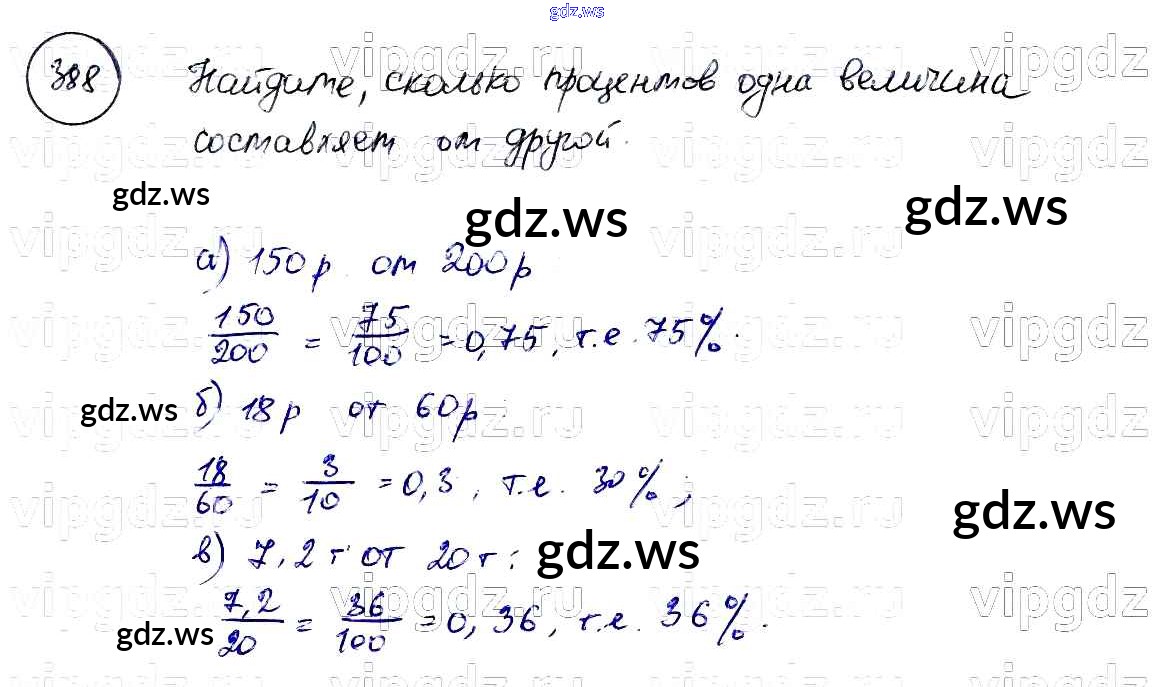 gdz.ws
388 Найдите, сколько процентов одна величина
составляет от другой.
gdz.ws gdz.ws gdz.ws
а) 150р от 200р
150/200 = 75/100 = 0,75, т.е. 75%.
gdz.ws б) 18р от 60р:
18/60 = 3/10 = 0,3, т.е. 30%;
gdz.ws
в) 7,2т от 20т:
gdz.ws
7,2/20 = 36/100 = 0,36, т.е. 36%.
gdz.ws
vipgdz.ru vipgdz.ru vipgdz.ru vipgdz